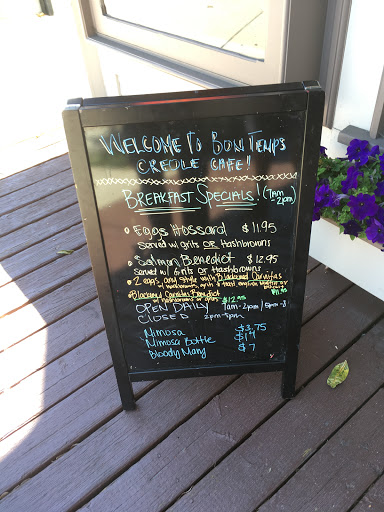 WELCOME TO BON TEMPS
CREOLE CAFE!
BREAKFAST SPECIALS! (7AM-
2PM)
• Eggs Hossard $11.95
Served w/ grits OR Hashbrowns
• Salmon Benedict $12.95
Served w/ Grits OR Hashbrowns
• 2 eggs any style with Blackened Carnitas
w/ hashbrowns, grits & toast, english muffin or
• Blackened Carnitas Benedict
w/ hashbrowns or grits $12.95
OPEN DAILY 7am-2pm / 5pm-8
CLOSED 2pm-5pm
Mimosa $3.75
Mimosa Bottle $14
Bloody Mary $7